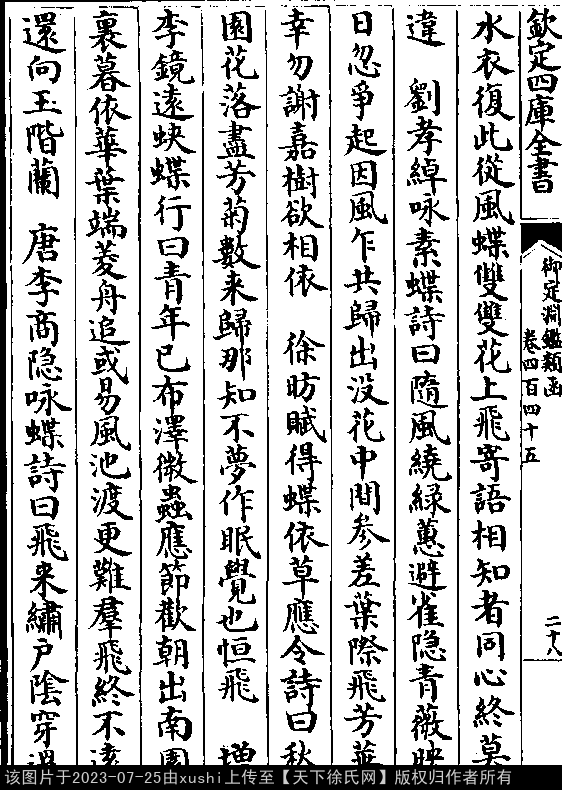 欽定四庫全書
御定淵鑑類函
卷四百四十五
二十八
水衣復此從風蝶雙雙花上飛寄語相知者同心終莫
違　劉孝綽咏素蝶詩曰隨風繞綠蕙避雀隐青薇映
日忽爭起因風乍共歸出没花中間参差葉際飛芳華
幸勿謝嘉樹欲相依　徐昉賦得蝶依草應令詩曰秋
園花落盡芳菊數来歸那知不夢作眠覺也恒飛　增
李鏡遠蛺蝶行曰青年已布澤微蟲應節歡朝出南園
裏暮依華葉端菱舟追或易風池渡更難羣飛終不遠
還向玉階蘭　唐李商隐咏蝶詩曰飛来繡户陰穿過
该图片于2023-07-25由xushi上传至【天下徐氏网】版权归作者所有